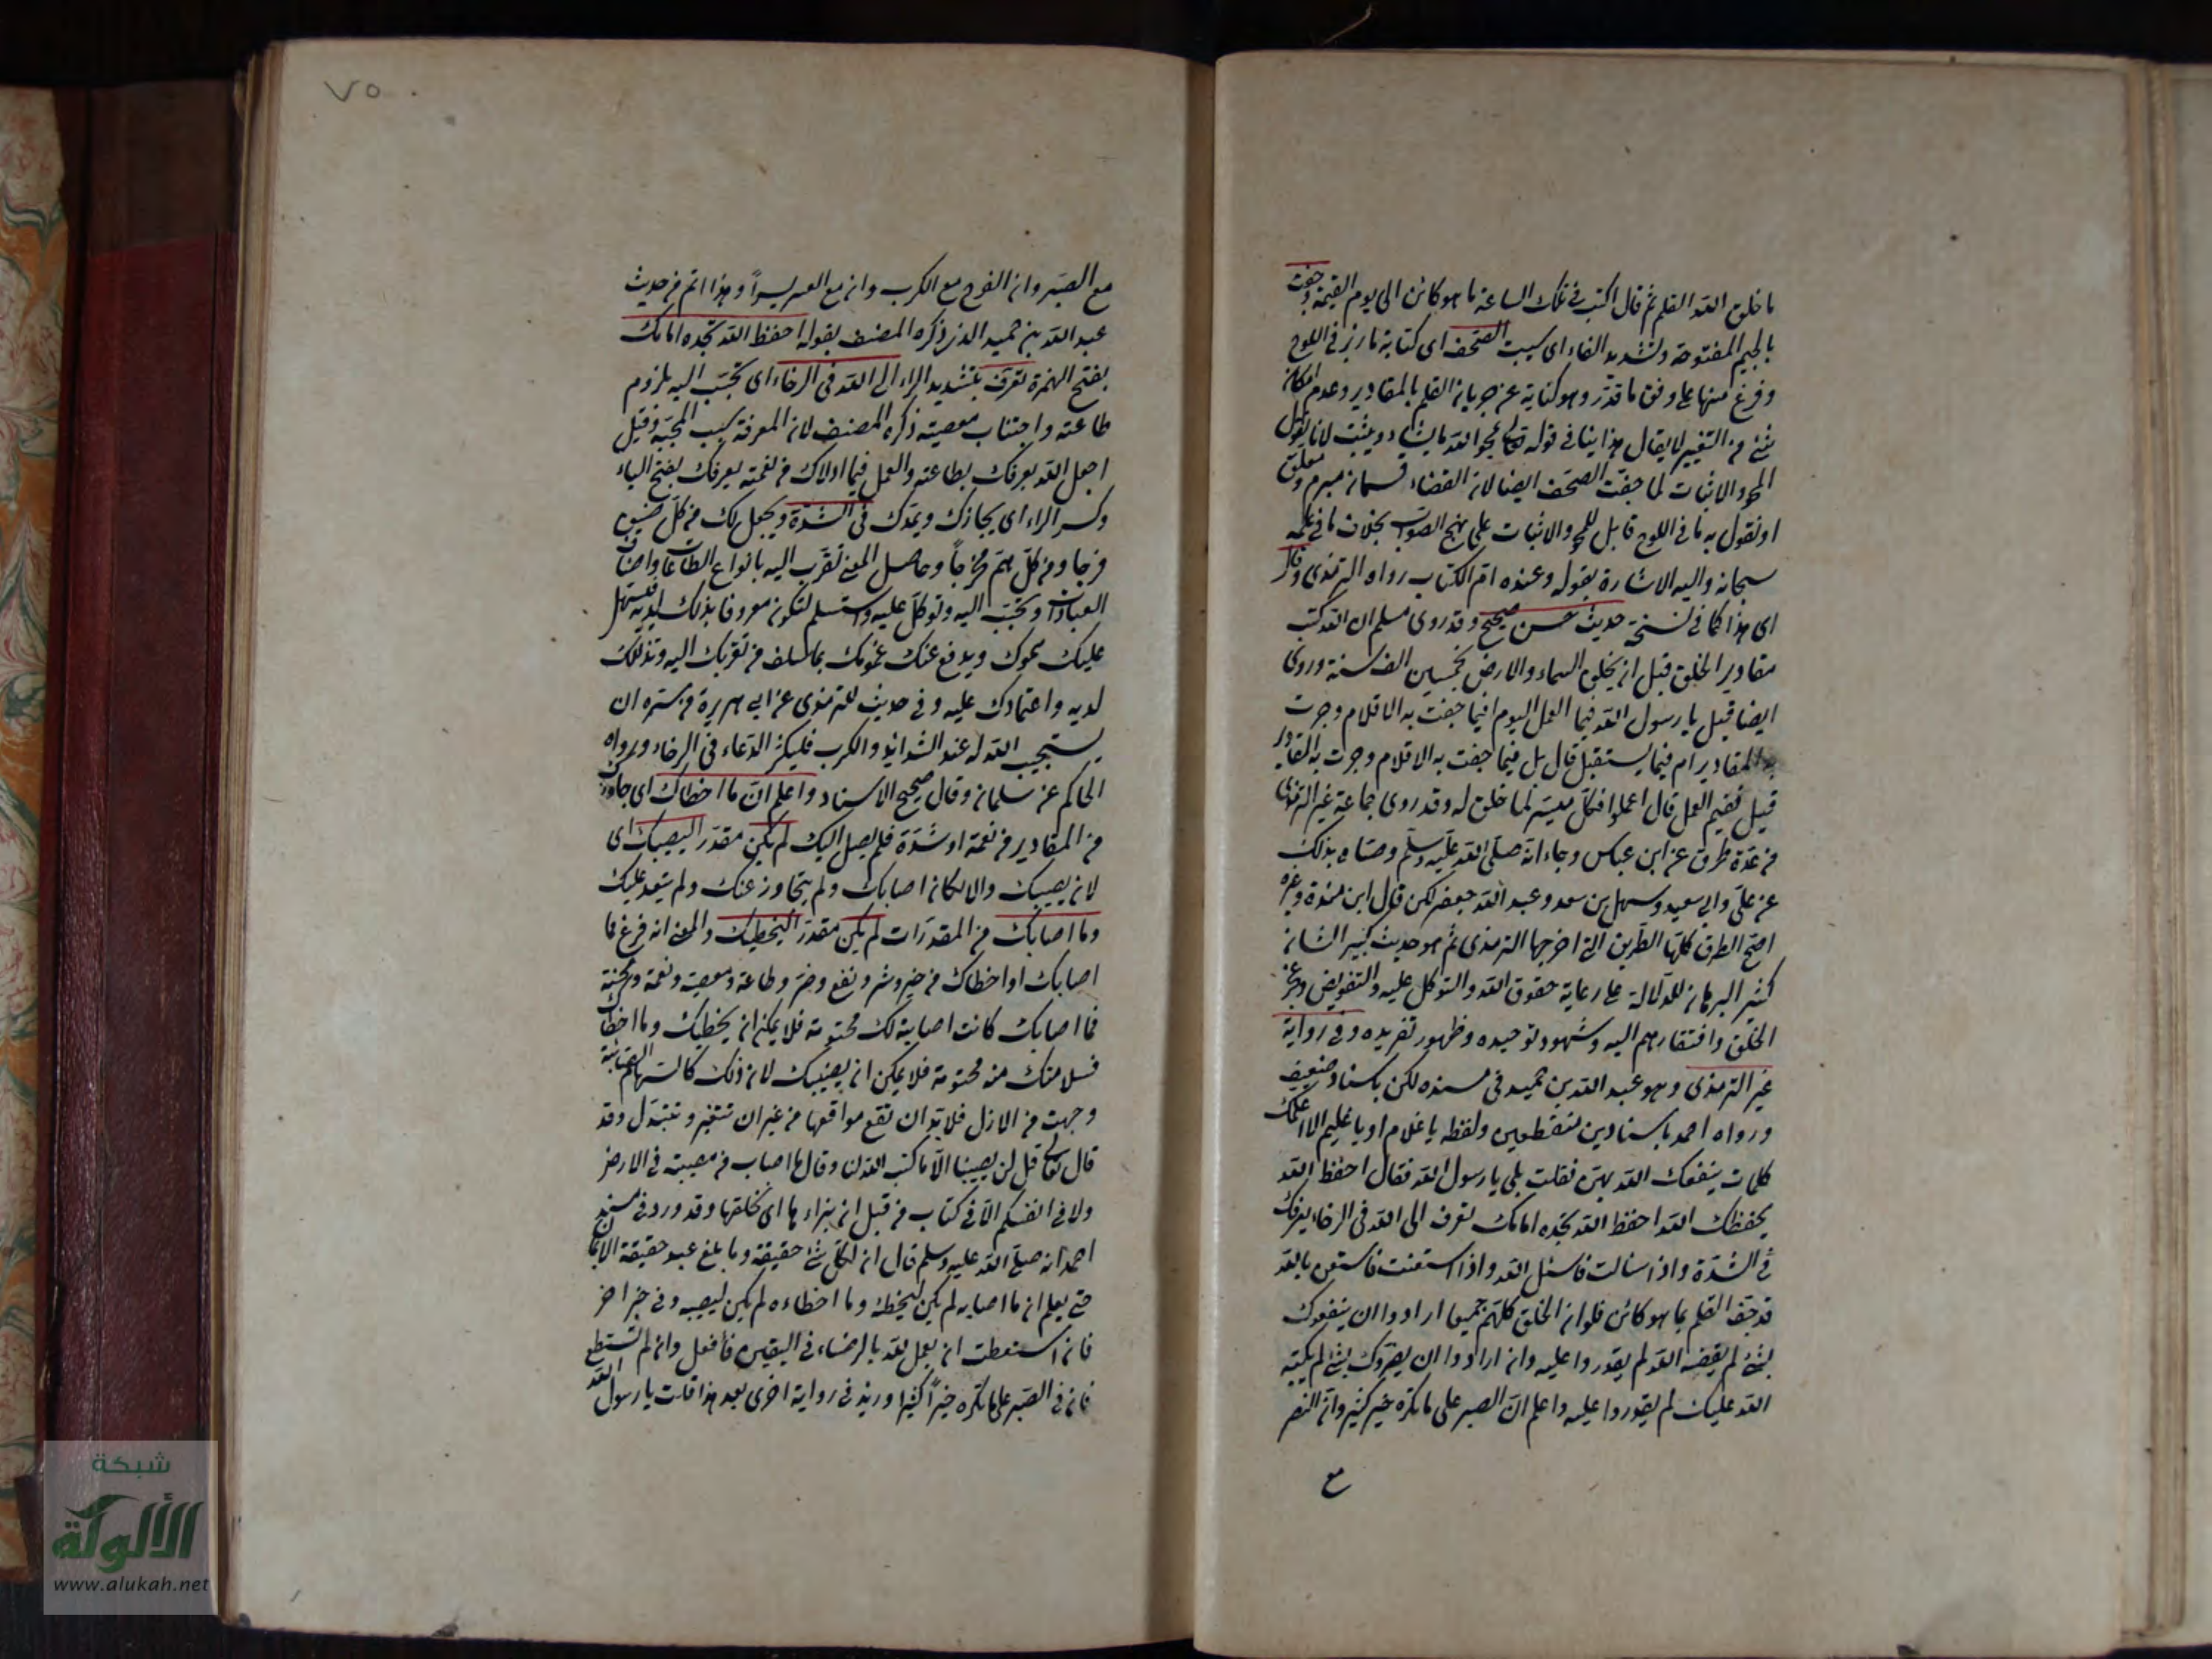 ما خلق الله القلم ثم قال اكتب في تلك الساعة ما هو كائن الى يوم القيمة وجفت
بالجيم المفتوحة وتشديد الفاء اى يبست الصحف اى كتابة ما رزبر في اللوح
وفرغ منها على وفق ما قدر وهو كناية عن جريان القلم بالمقادير وعدم امكان
شئ من التغيير لا يقال هذا ينافي قوله تعالى يمحو الله ما يشاء ويثبت لانا نقول
المحو والاثبات لما جفت الصحف ايضا لان القضاء قسمان مبرم ومعلق
او نقول به ما في اللوح قابل للمحو والاثبات على نهج الصواب بخلاف ما في علمه
سبحانه واليه الاشارة بقوله وعنده ام الكتاب رواه الترمذى وقال
اى هذا كما في نسخة حديث حسن صحيح وقد روى مسلم ان الله كتب
مقادير الخلق قبل ان يخلق السماء والارض بخمسين الف سنة وروى
ايضا قيل يا رسول الله فيما العمل اليوم افيما جفت به الاقلام وجرت
به المقادير ام فيما يستقبل قال بل فيما جفت به الاقلام وجرت به المقادير
قيل ففيم العمل قال اعملوا فكل ميسر لما خلق له وقد روى جماعة غير الترمذى
من عدة طرق عن ابن عباس وجاء انه صلى الله عليه وسلم وصاه بذلك
عن على وابي سعيد وسهل بن سعد وعبد الله جعفر لكن قال ابن مندة وغيره
اصح الطرق كلها الطريق التي اخرجها الترمذى ثم هو حديث كبير الشان
كثير البرهان للدلالة على رعاية حقوق الله والتوكل عليه والتفويض وعجز
الخلق وافتقارهم اليه وشهود توحيده وظهور تفريده وفي رواية
غير الترمذى وهو عبد الله بن حميد في مسنده لكن باسناد ضعيف
ورواه احمد باسنادين منقطعين ولفظه يا غلام او يا غليم الا اعلمك
كلمات ينفعك الله بهن فقلت بلى يا رسول الله فقال احفظ الله
يحفظك الله احفظ الله تجده امامك تعرف الى الله في الرخاء يعرفك
في الشدة واذا سالت فاسئل الله واذا استعنت فاستعن بالله
قد جف القلم بما هو كائن فلو ان الخلق كلهم جميعا ارادوا ان ينفعوك
بشئ لم يقضه الله لم يقدروا عليه وان ارادوا ان يضروك بشئ لم يكتبه
الله عليك لم يقدروا عليه واعلم ان الصبر على ما تكره خير كثير وان النصر
مع
٧٥
مع الصبر وان الفرج مع الكرب وان مع العسر يسرا وهذا اتم من حديث
عبد الله بن حميد الذى ذكره المصنف بقوله احفظ الله تجده امامك
بفتح الهمزة تعرف بتشديد الراء الى الله في الرخاء اى تحبب اليه بلزوم
طاعته واجتناب معصيته ذكره المصنف لان المعرفة سبب المحبة وقيل
اجعل الله يعرفك بطاعته والعمل فيما اولاك من نعمته يعرفك بفتح الياء
وكسر الراء اى يجازك ويمدك في الشدة ويجعل لك من كل ضيق
فرجا ومن كل هم مخرجا وحاصل المعنى تقرب اليه بانواع الطاعات واصناف
العبادات وتحبب اليه وتوكل عليه واستسلم لتكون معروفا بذلك لديه فيسهل
عليك همومك ويدفع عنك غمومك بما سلف من تقربك اليه وتذللك
لديه واعتمادك عليه وفي حديث للترمذى عن ابي هريرة من سره ان
يستجيب الله له عند الشدائد والكرب فليكثر الدعاء في الرخاء ورواه
الحاكم عن سلمان وقال صحيح الاسناد واعلم ان ما اخطاك اى جاوزك
من المقادير من نعمة او شدة فلم يصل اليك لم يكن مقدر ليصيبك اى
لان يصيبك والا لكان اصابك ولم يتجاوز عنك ولم يتعد عليك
وما اصابك من المقدرات لم يكن مقدر ليخطيك والمعنى انه فرغ مما
اصابك او اخطاك من خير وشر ونفع وضر وطاعة ومعصية ونعمة ومحنة
فما اصابك كانت اصابته لك محتومة فلا يمكن ان يخطيك وما اخطاك
فسلامتك منه محتومة فلا يمكن ان يصيبك لان ذلك كالسهام الصائبة
وجهت من الازل فلا بد ان تقع مواقعها من غير ان تتغير وتتبدل وقد
قال تعالى قل لن يصيبنا الا ما كتب الله لنا وقال ما اصاب من مصيبة في الارض
ولا في انفسكم الا في كتاب من قبل ان نبراء ها اى نخلقها وقد ورد في مسند
احمد انه صلى الله عليه وسلم قال ان لكل شئ حقيقة وما بلغ عبد حقيقة الايمان
حتى يعلم ان ما اصابه لم يكن ليخطئه وما اخطاءه لم يكن ليصيبه وفي خبر اخر
فان استطعت ان يعمل لله بالرضاء في اليقين فافعل وان لم تستطع
فان في الصبر على ما تكره خيرا كثيرا وزيد في رواية اخرى بعد هذا قلت يا رسول الله
شبكة
الألوكة
www.alukah.net